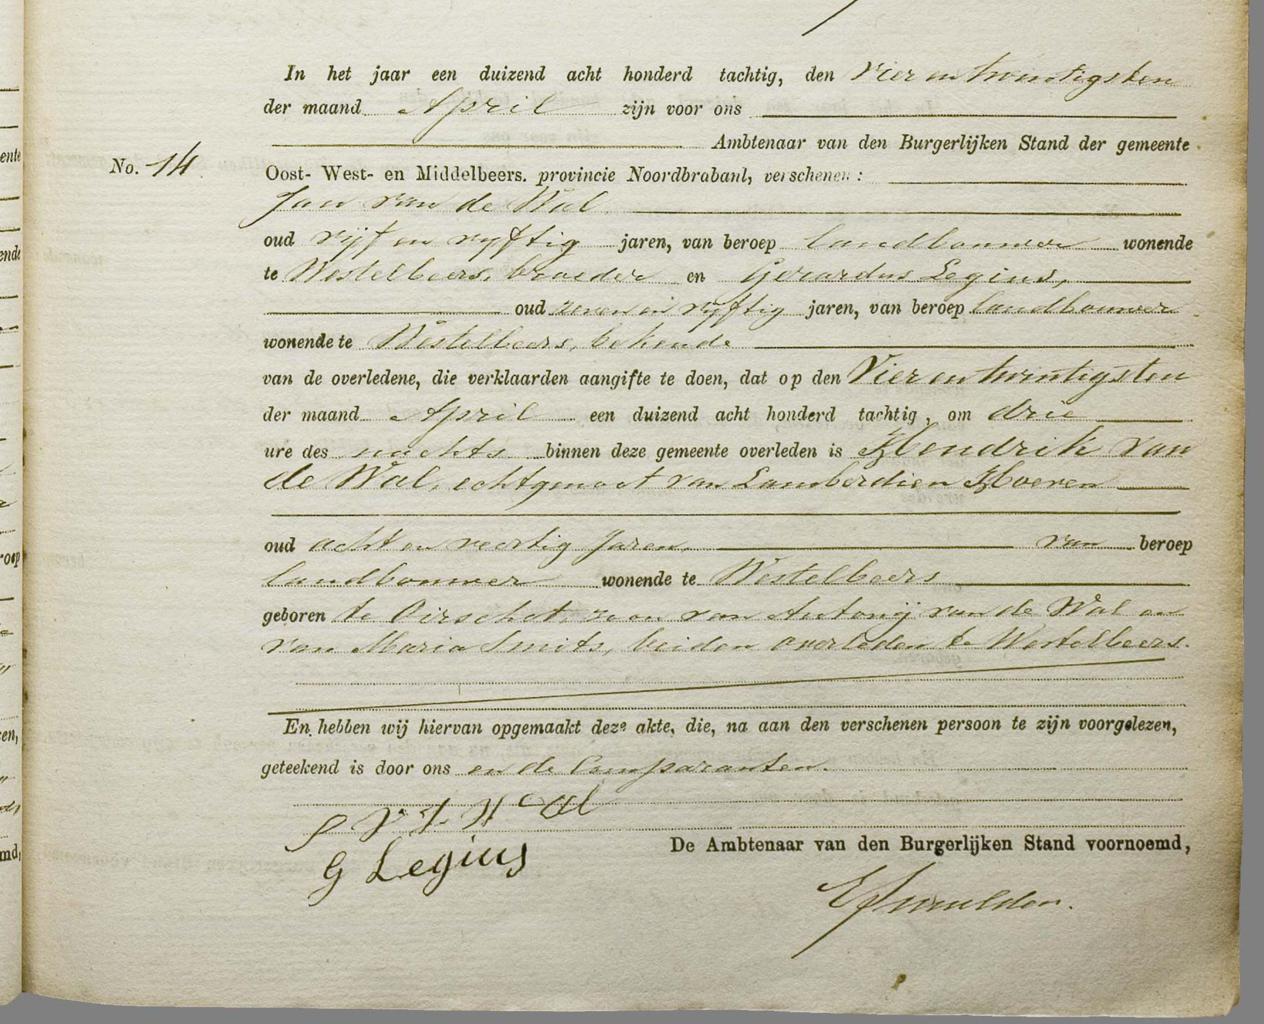 In het jaar een duizend acht honderd tachtig, den Vier en twintigsten
der maand April zijn voor ons
Ambtenaar van den Burgerlijken Stand der gemeente
No. 14. Oost- West- en Middelbeers. provincie Noordbrabant, verschenen:
Jan van de Wal
oud vijf en vyftig jaren, van beroep landbouwer wonende
te Westelbeers, broeder en Gerardus Legius,
oud zeven en vyftig jaren, van beroep landbouwer
wonende te Westelbeers, bekende
van de overledene, die verklaarden aangifte te doen, dat op den Vier en twintigsten
der maand April een duizend acht honderd tachtig, om drie
ure des nachts binnen deze gemeente overleden is Hendrik van
de Wal, echtgenoot van Lamberdien Hoeven
oud acht en veertig Jaren, van beroep
landbouwer wonende te Westelbeers
geboren te Oirschot, zoon van Antonij van de Wal en
van Maria Smits, beiden overleden te Westelbeers.
En hebben wij hiervan opgemaakt deze akte, die, na aan den verschenen persoon te zijn voorgelezen,
geteekend is door ons en de Comparanten.
G Legius
De Ambtenaar van den Burgerlijken Stand voornoemd,